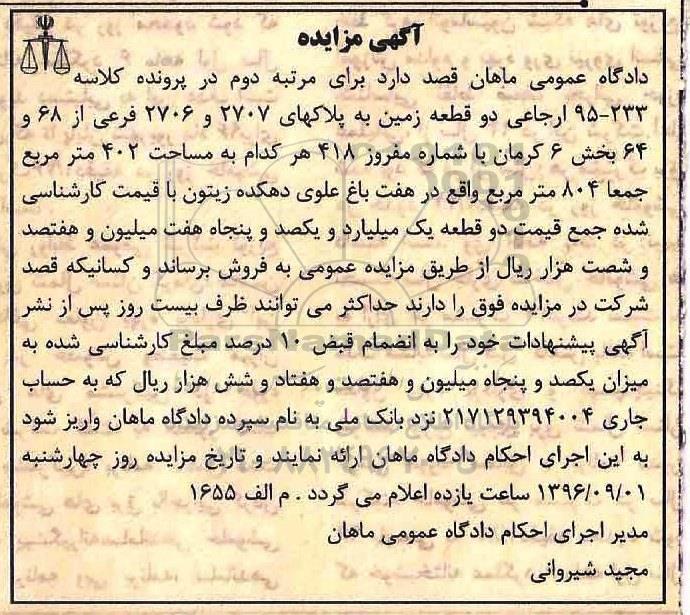 آگهی مزایده
دادگاه عمومی ماهان قصد دارد برای مرتبه دوم در پرونده کلاسه
۹۵-۲۳۳ ارجاعی دو قطعه زمین به پلاکهای ۲۷۰۷ و ۲۷۰۶ فرعی از ۶۸ و
۶۴ بخش ۶ کرمان با شماره مفروز ۴۱۸ هر کدام به مساحت ۴۰۲ متر مربع
جمعا ۸۰۴ متر مربع واقع در هفت باغ علوی دهکده زیتون با قیمت کارشناسی
شده جمع قیمت دو قطعه یک میلیارد و یکصد و پنجاه هفت میلیون و هفتصد
و شصت هزار ریال از طریق مزایده عمومی به فروش برساند و کسانیکه قصد
شرکت در مزایده فوق را دارند حداکثر می توانند ظرف بیست روز پس از نشر
آگهی پیشنهادات خود را به انضمام قبض ۱۰ درصد مبلغ کارشناسی شده به
میزان یکصد و پنجاه میلیون و هفتصد و هفتاد و شش هزار ریال که به حساب
جاری ۲۱۷۱۲۹۳۹۴۰۰۴ نزد بانک ملی به نام سپرده دادگاه ماهان واریز شود
به این اجرای احکام دادگاه ماهان ارائه نمایند و تاریخ مزایده روز چهارشنبه
۱۳۹۶/۰۹/۰۱ ساعت یازده اعلام می گردد . م الف ۱۶۵۵
مدیر اجرای احکام دادگاه عمومی ماهان
مجید شیروانی